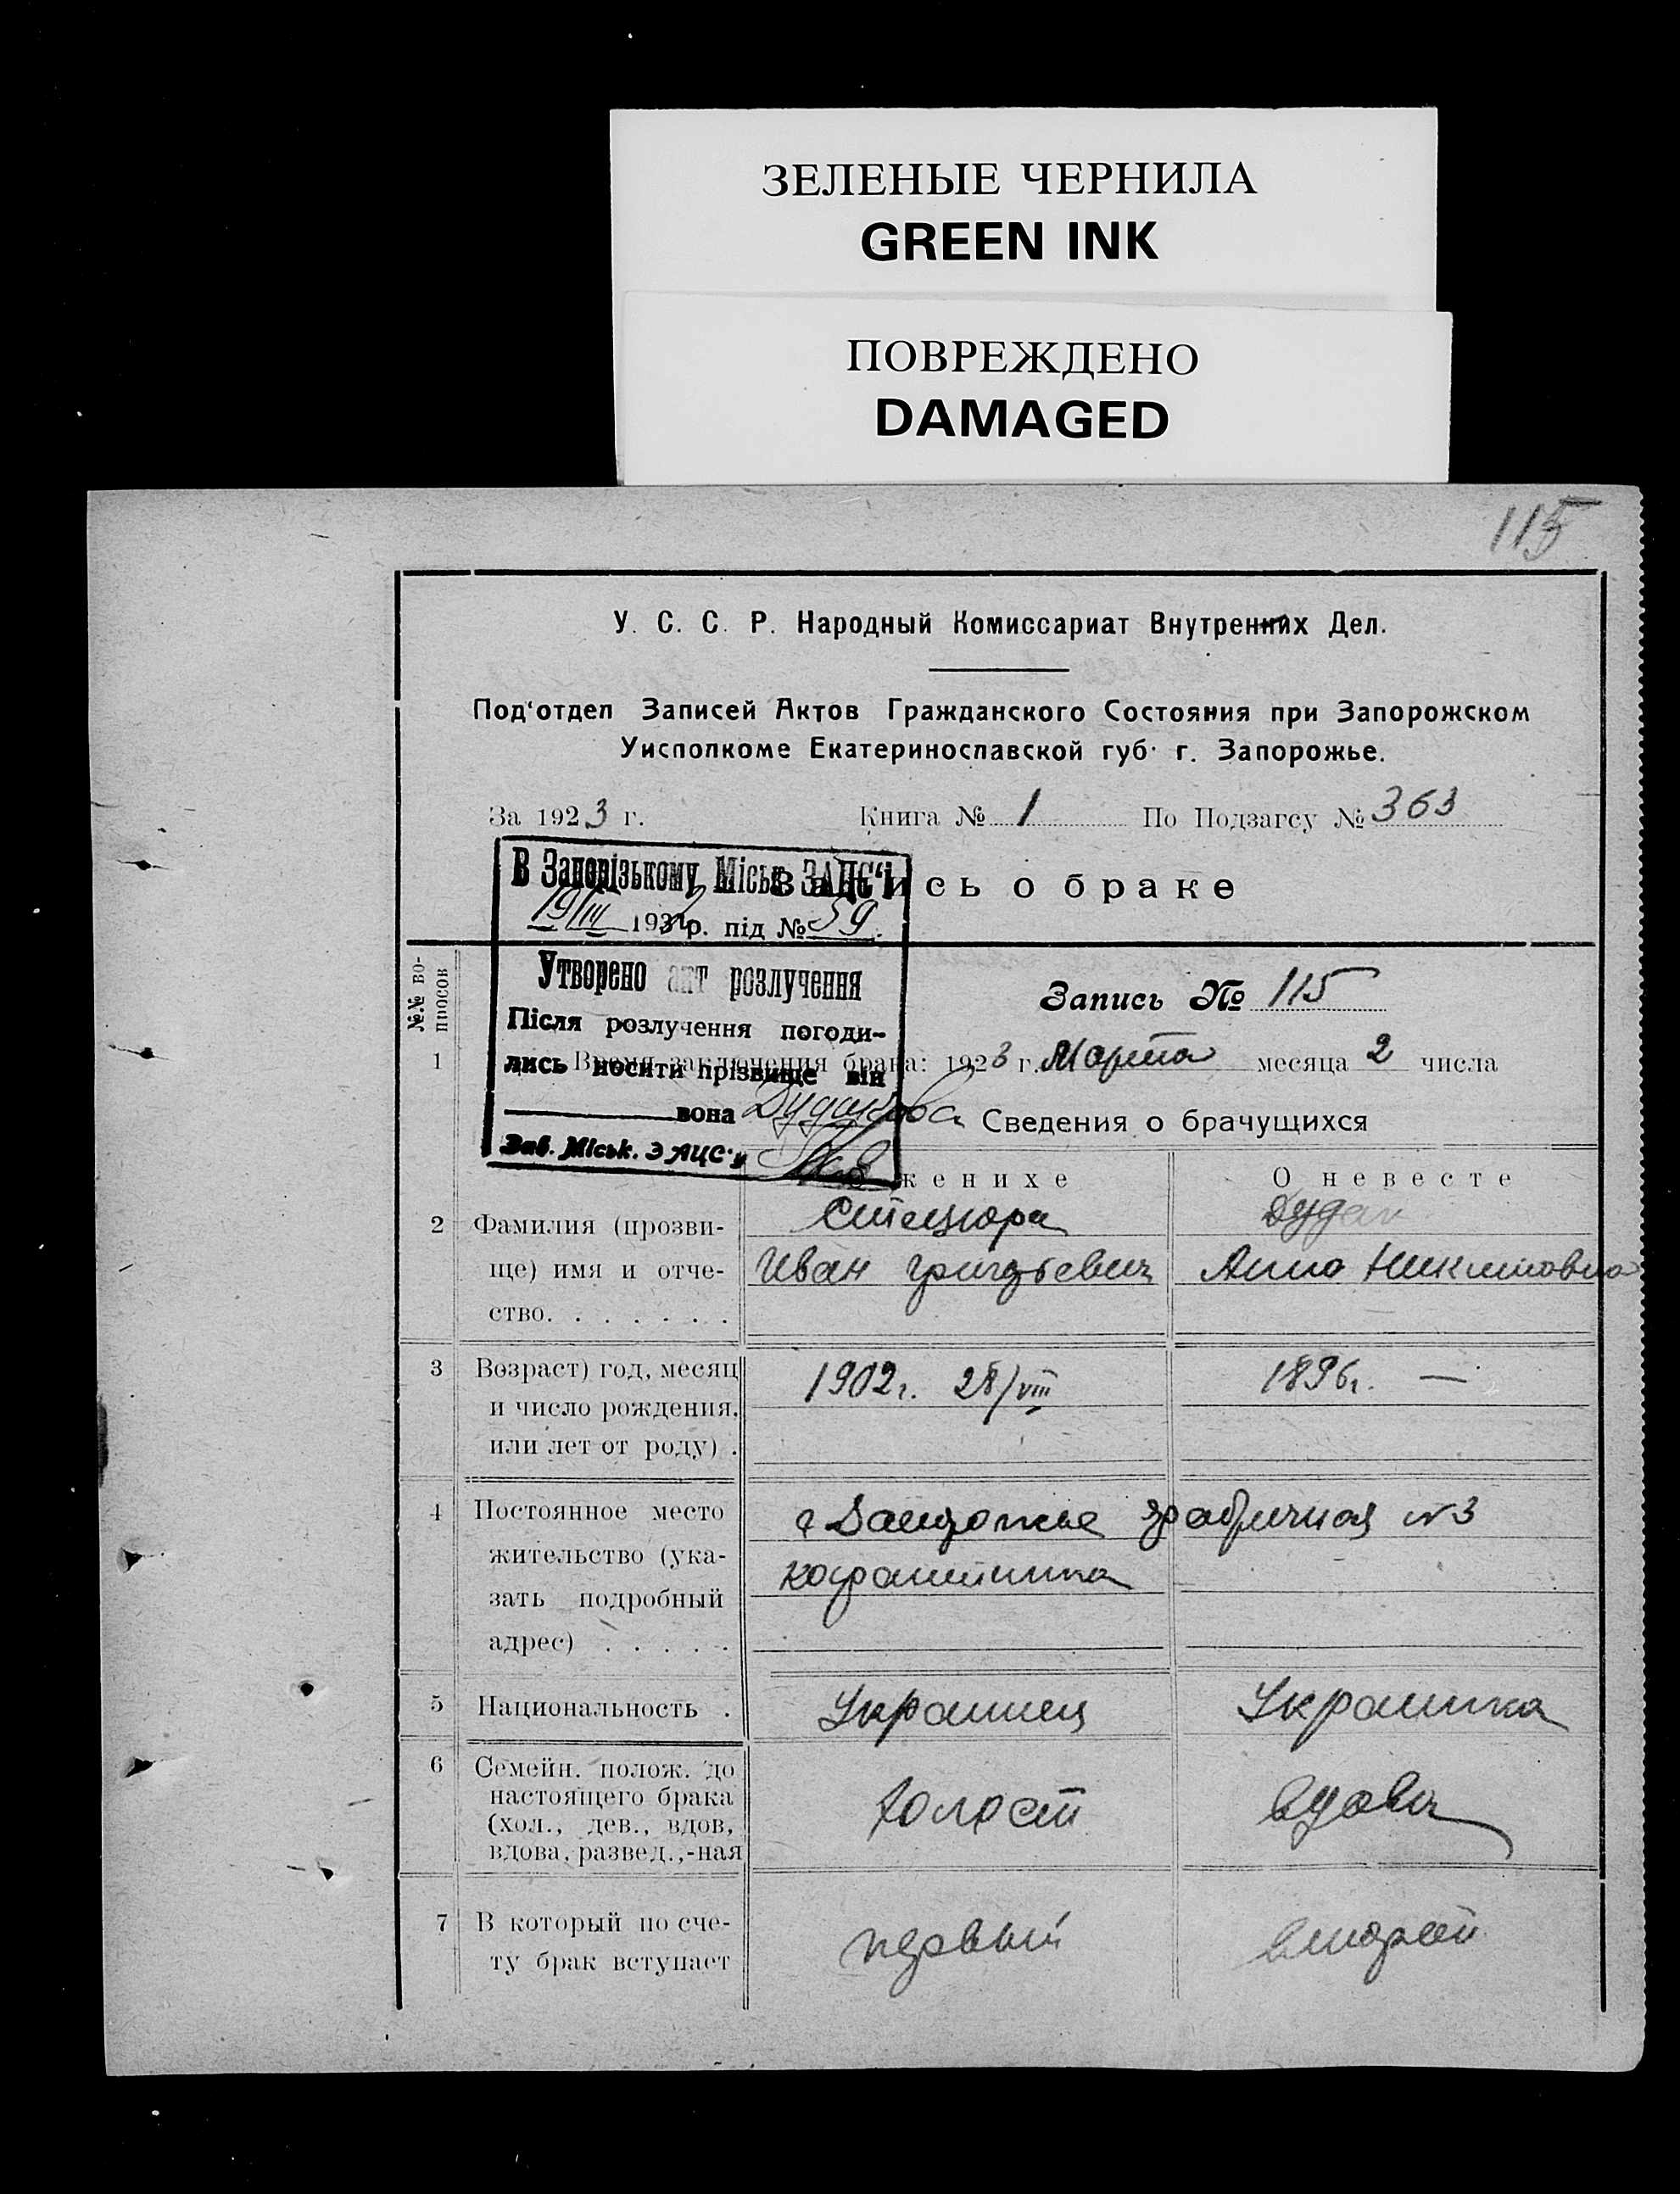 ЗЕЛЕНЫЕ ЧЕРНИЛА
GREEN INK
ПОВРЕЖДЕНО
DAMAGED
115
У. С. С. Р. Народный Комиссариат Внутренних Дел.
Под'отдел Записей Актов Гражданского Состояния при Запорожском
Уисполкоме Екатеринославской губ. г. Запорожье.
За 1923 г. Книга № 1 По Подзагсу № 363
Запись о браке
В Запорізькому Міськ. ЗАЦС'і
19/III 193 р. під № 59.
Утворено акт розлучення
Після розлучення погоди-
лись носити прізвище він
вона
Зав. Міськ. ЗАЦС'у
№.№ во-
просов
Запись № 115
1 Время заключения брака: 1923 г. Марта месяца 2 числа
Сведения о брачущихся
О женихе О невесте
2 Фамилия (прозви-
ще) имя и отче-
ство. . . . . . .
Стецюра
Иван Григорьевич
Дудак
Анна Никитовна
3 Возраст) год, месяц
и число рождения,
или лет от роду) .
1902 г. 28/VIII
1896 г. —
4 Постоянное место
жительство (ука-
зать подробный
адрес) . . . . .
г Запорожье Фабричная №3
5 Национальность .
Украинец
Украинка
6 Семейн. полож. до
настоящего брака
(хол., дев., вдов,
вдова, развед.,-ная
Холост
вдова
7 В который по сче-
ту брак вступает
первый
второй